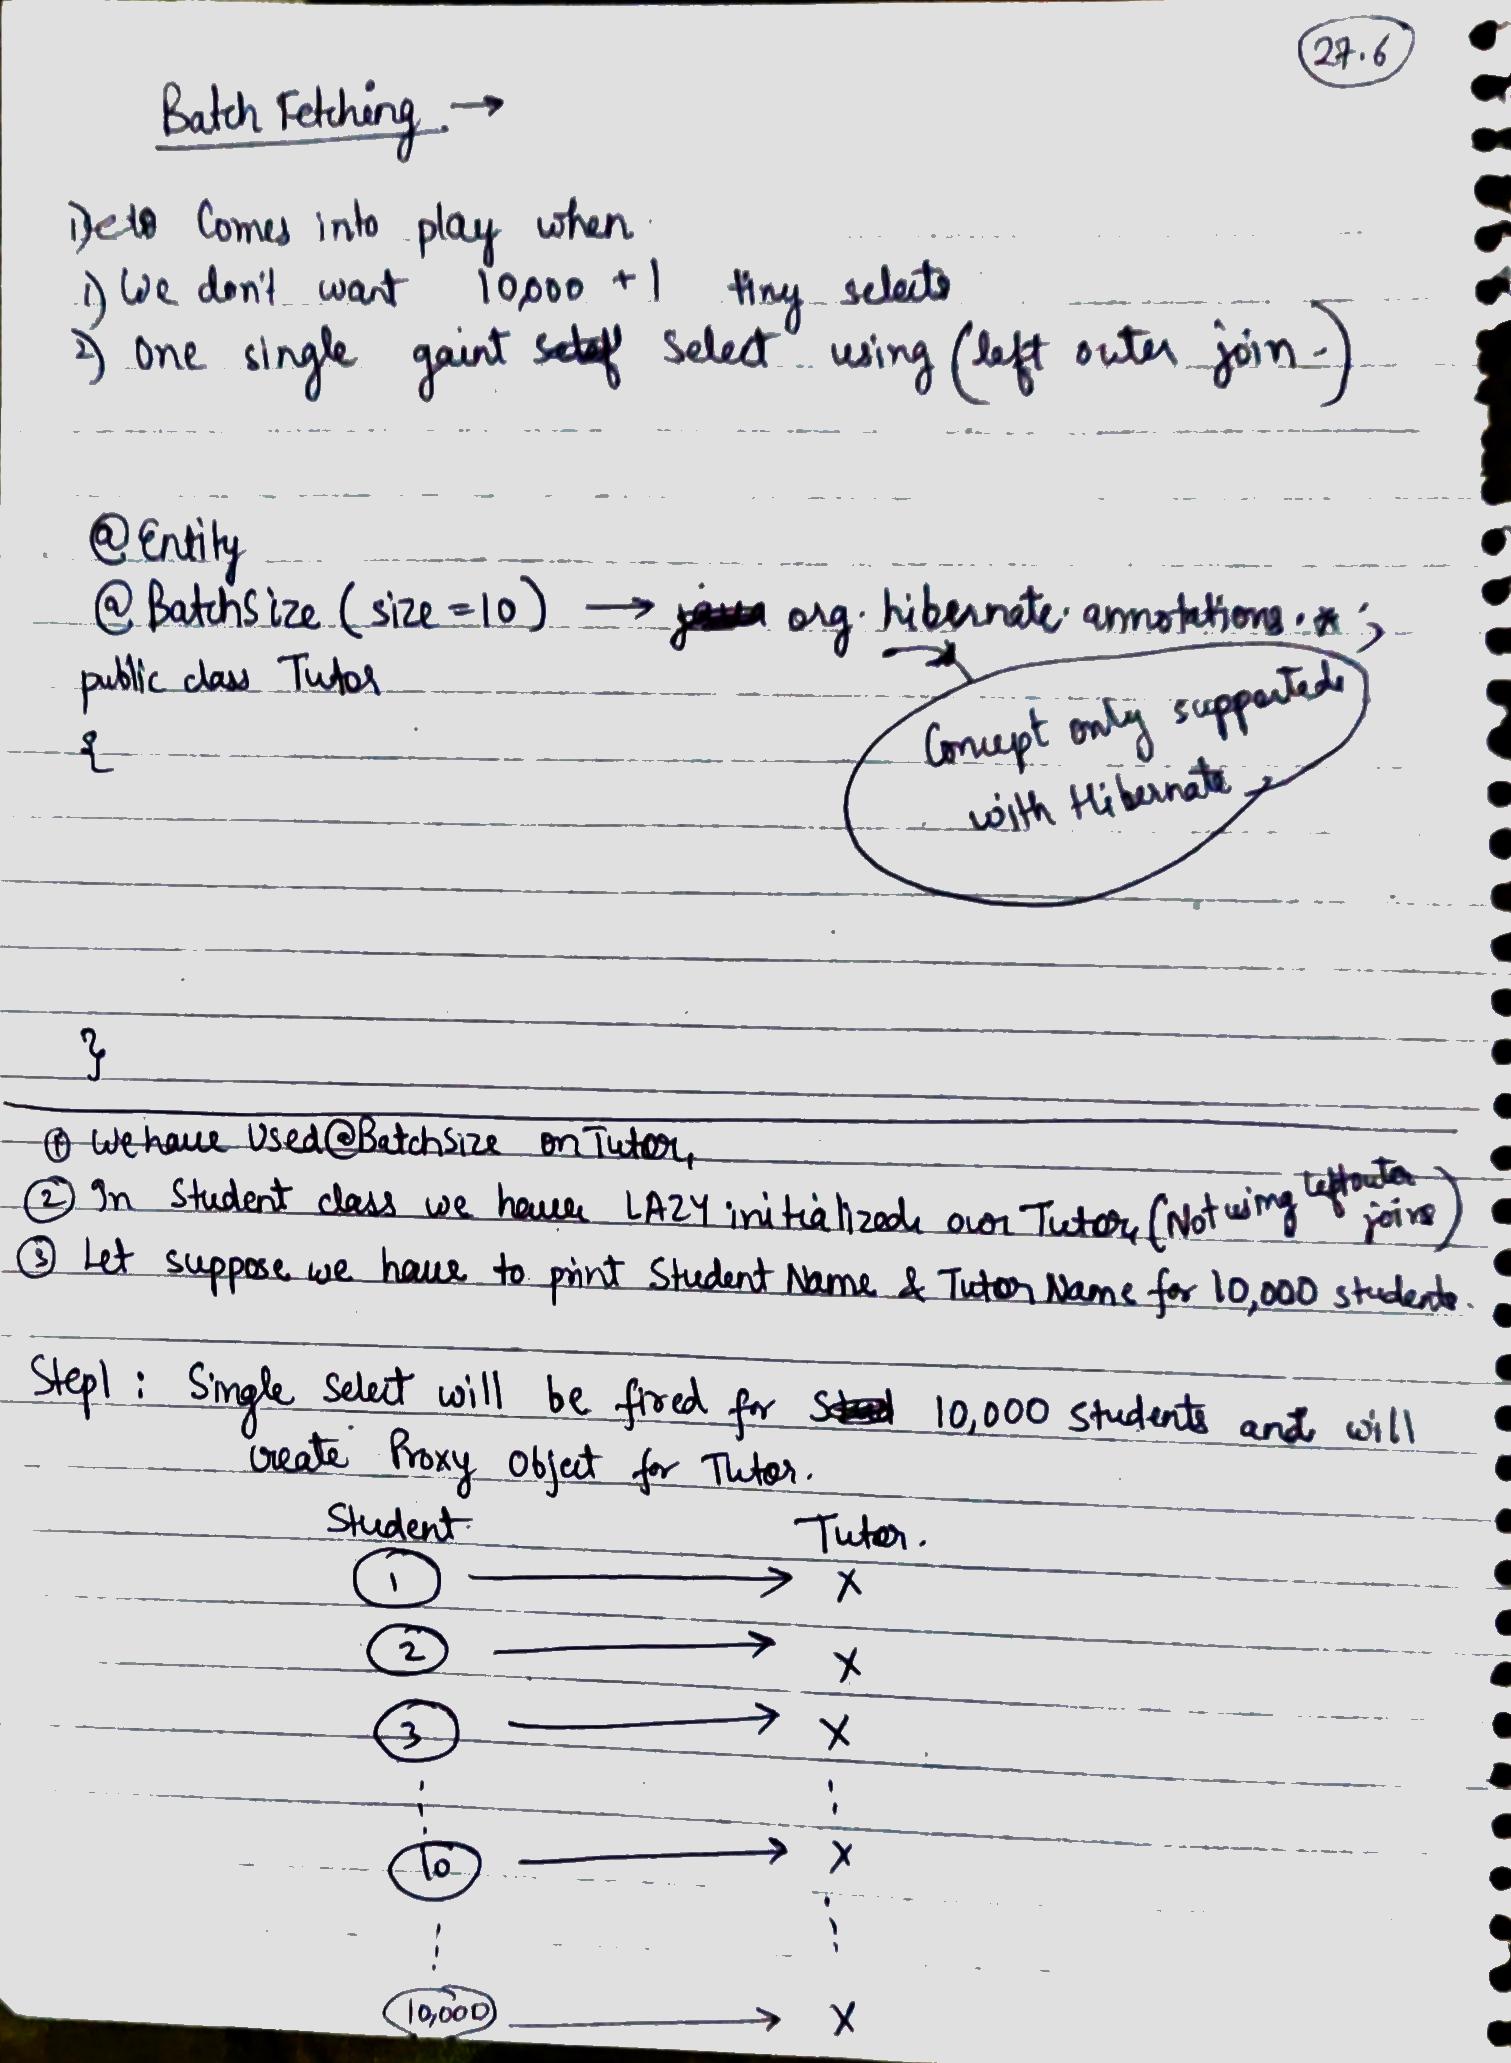 27.6
Batch Fetching →
Comes into play when
1) We don't want 10,000 + 1 tiny selects
2) one single gaint select using (left outer join)
@Entity
@BatchSize (size=10) → org.hibernate.annotations.*;
public class Tutor
{
Concept only supported
with Hibernate
}
① We have Used @BatchSize on Tutor,
② In Student class we have LAZY initialized our Tutor, (Not using left outer joins)
③ Let suppose we have to print Student Name & Tutor Name for 10,000 students.
Step1 : Single select will be fired for 10,000 students and will
create Proxy Object for Tutor.
Student Tutor.
1 → X
2 → X
3 → X
10 → X
10,000 → X